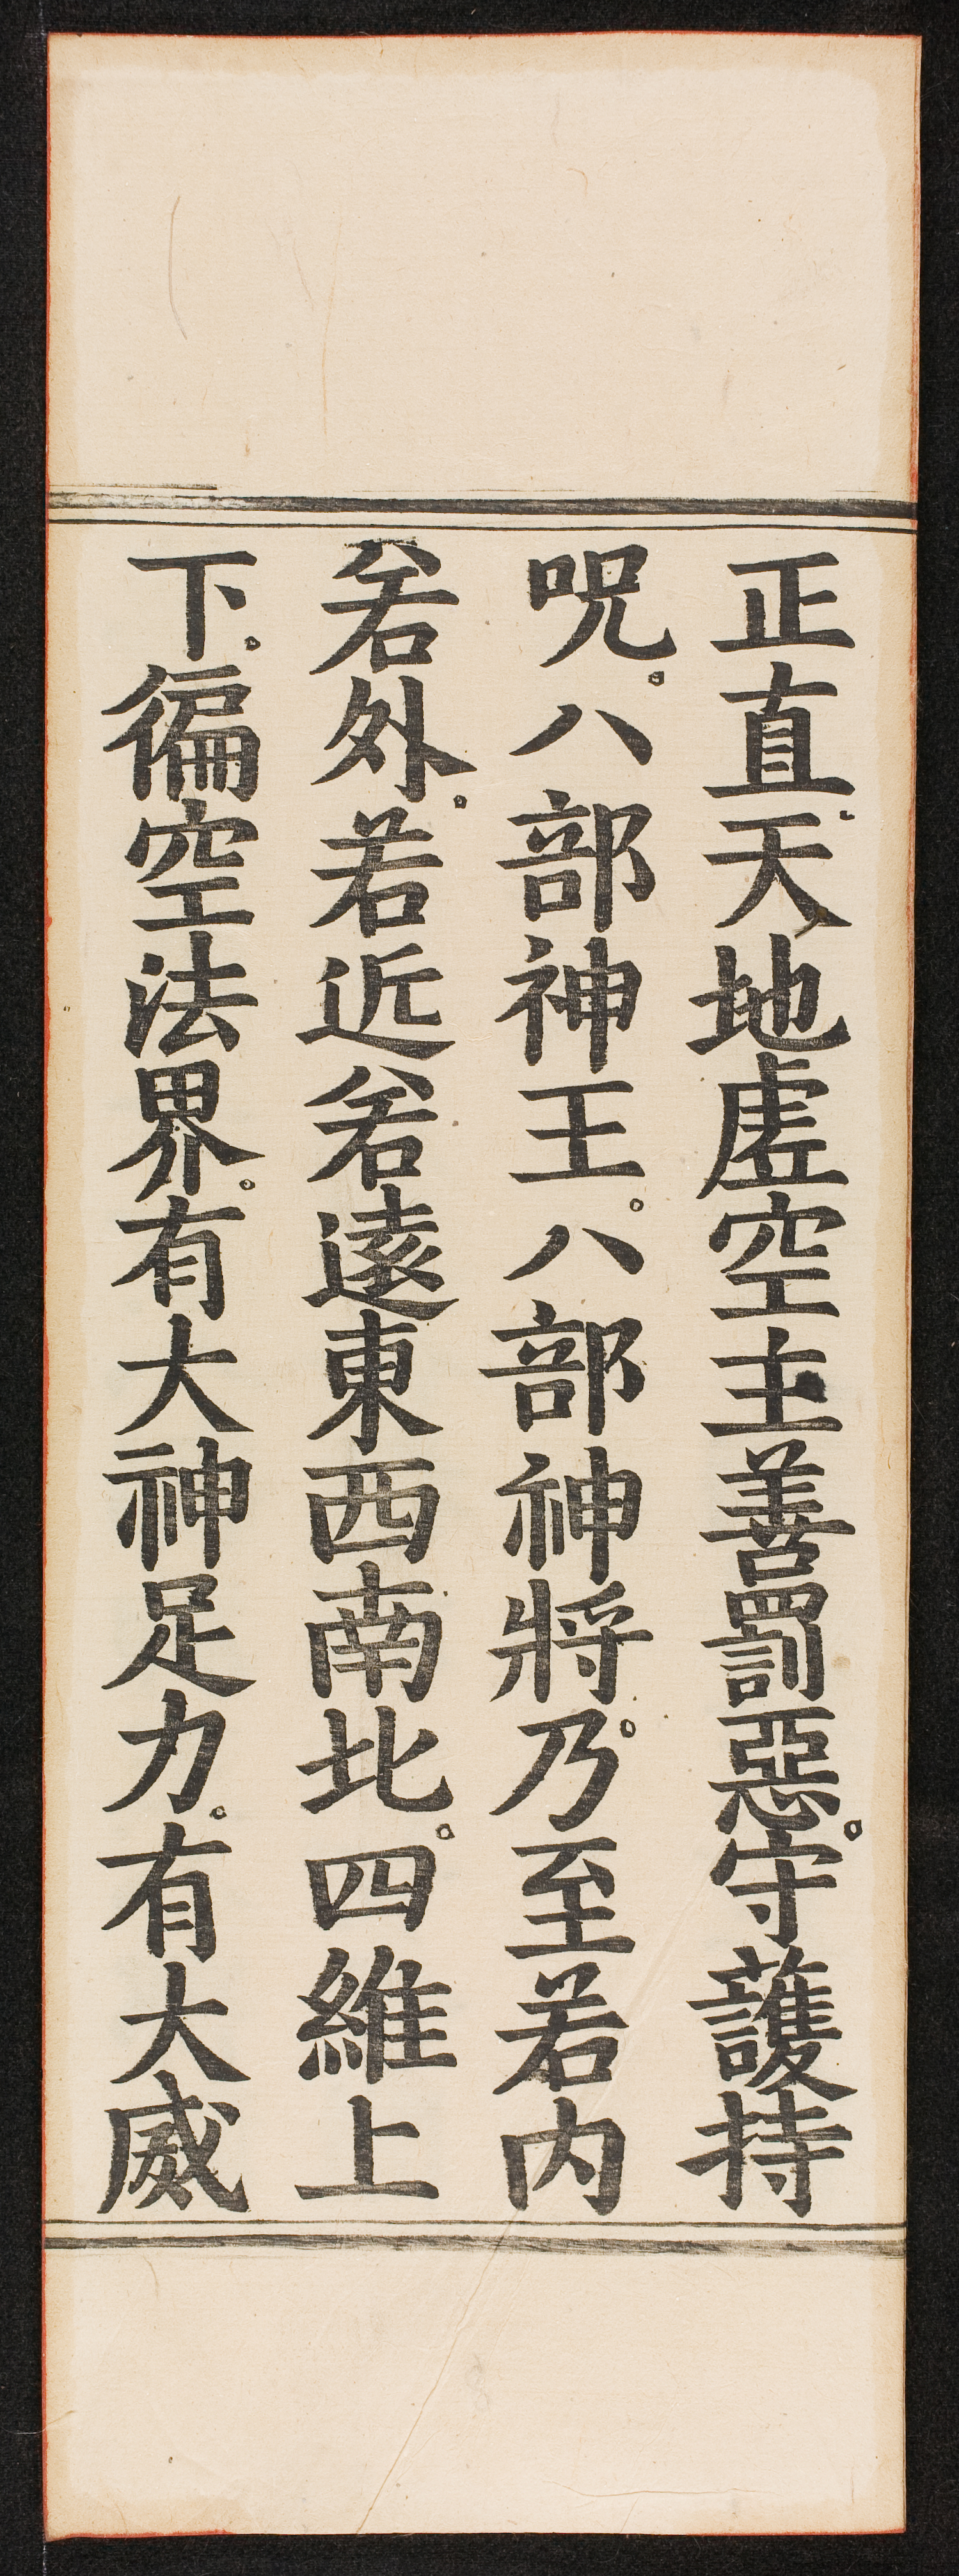 正直天地虛空主善罰惡。守護持
呪。八部神王。八部神將。乃至若內
若外。若近若遠東西南北。四維上
下。徧空法界。有大神足力。有大威